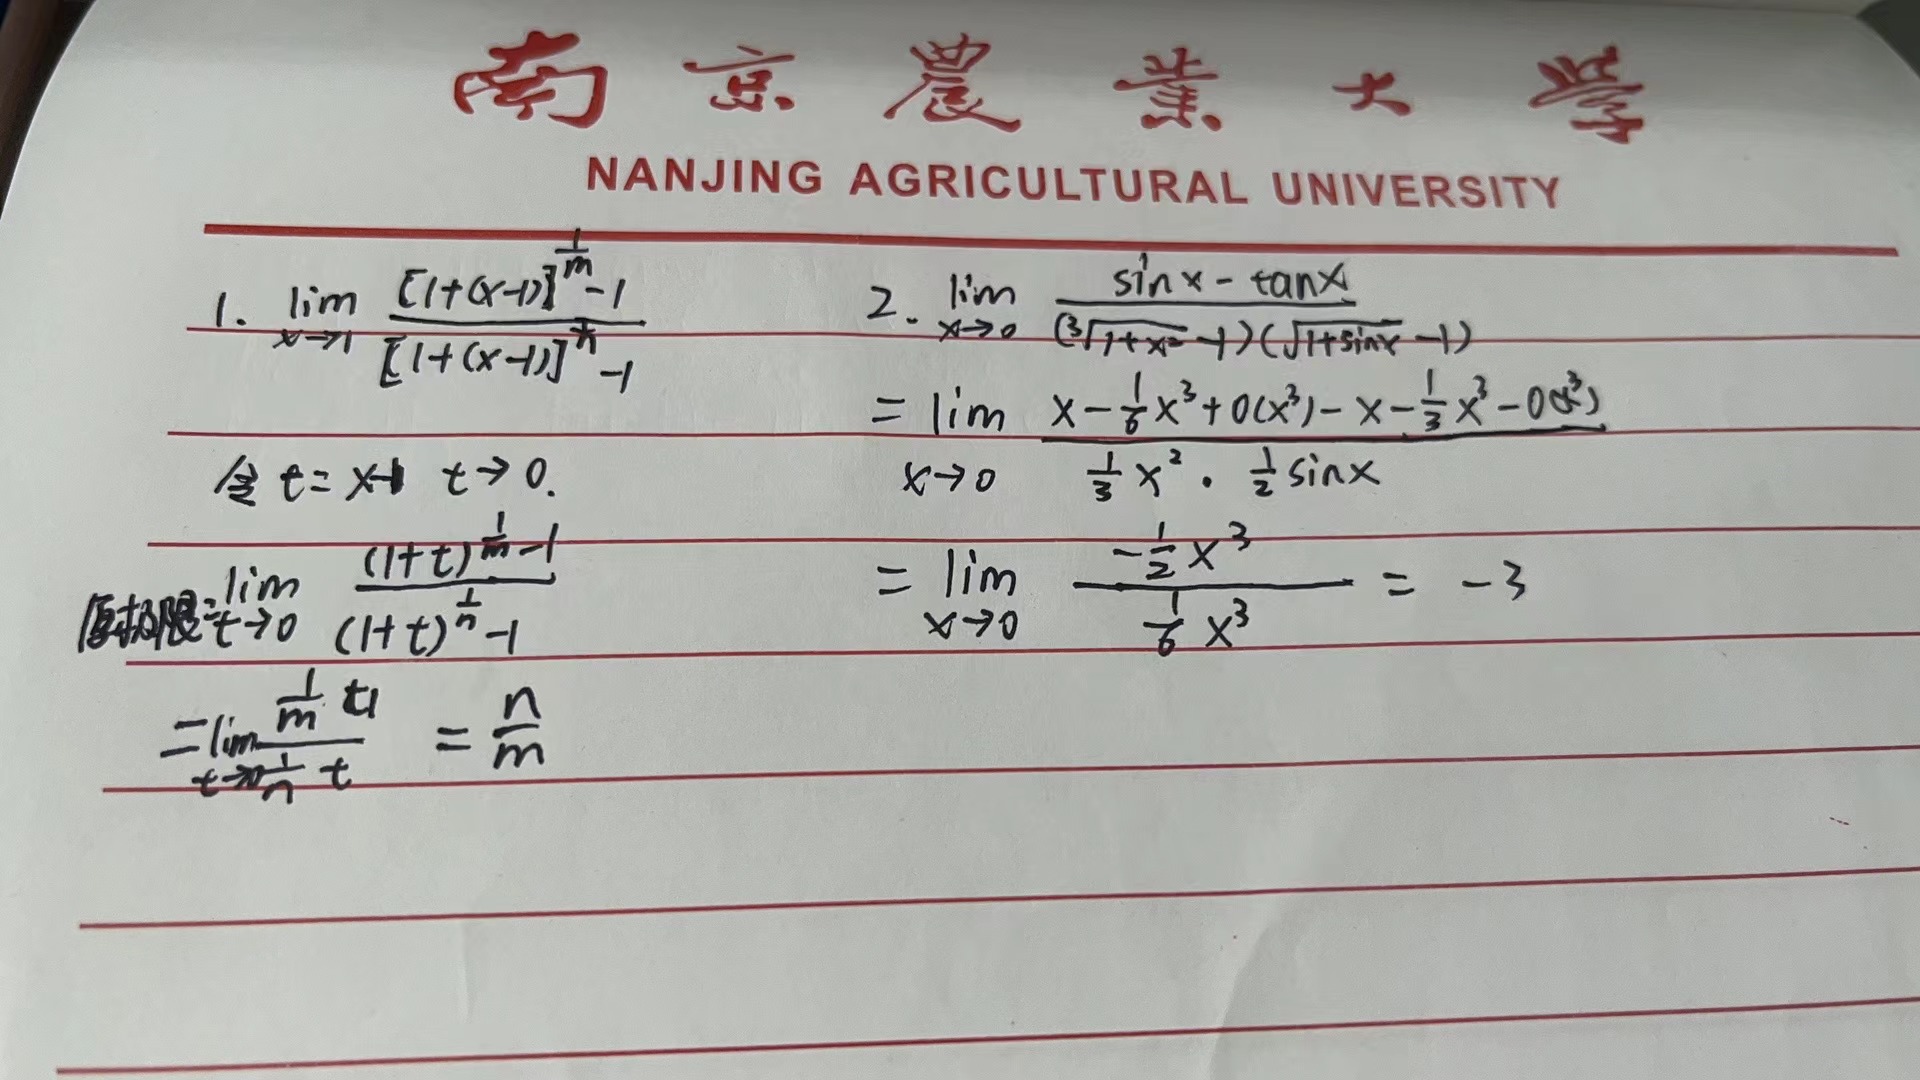 南京農業大學
NANJING AGRICULTURAL UNIVERSITY
1. lim x→1 ([1+(x-1)]^(1/m) -1)/([1+(x-1)]^(1/n) -1)
令 t = x-1 t→0.
原极限= lim t→0 ((1+t)^(1/m) -1)/((1+t)^(1/n) -1)
= lim t→0 (1/m t)/(1/n t) = n/m
2. lim x→0 (sinx - tanx)/((³√(1+x²) -1)(√(1+sinx) -1))
= lim x→0 (x - 1/6 x³ + o(x³) - x - 1/3 x³ - o(x³))/(1/3 x² · 1/2 sinx)
= lim x→0 (-1/2 x³)/(1/6 x³) = -3